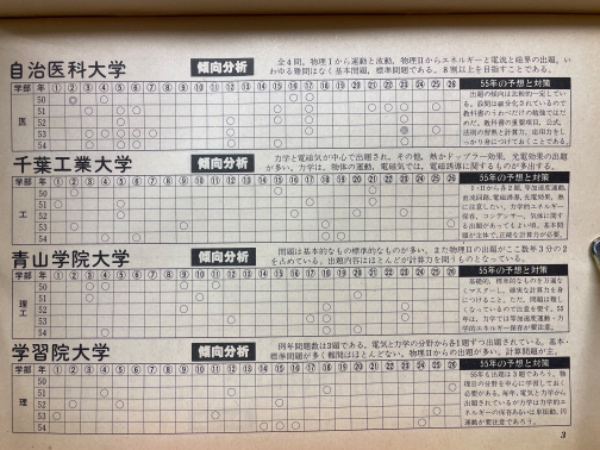 自治医科大学 傾向分析 全4問。物理Ⅰから運動と波動，物理Ⅱからエネルギーと電流と磁界の出題。い
わゆる難問はなく基本問題，標準問題である。8割以上を目指すことである。
学部 年 ① ② ③ ④ ⑤ ⑥ ⑦ ⑧ ⑨ ⑩ ⑪ ⑫ ⑬ ⑭ ⑮ ⑯ ⑰ ⑱ ⑲ ⑳ ㉑ ㉒ ㉓ ㉔ ㉕ ㉖
医
50
51
52
53
54
55年の予想と対策
出題の傾向は比較的一定してい
る。設問は細分化されているので
教科書のうわべだけの勉強ではだ
めだ。教科書の重要項目，公式，
法則の理解と計算力，応用力をし
っかり身につけておくことである。
千葉工業大学 傾向分析 力学と電磁気が中心で出題され，その他，熱かドップラー効果，光電効果の出題
が多い。力学は，物体の運動，電磁気では，電磁誘導に関するものが多出する。
学部 年 ① ② ③ ④ ⑤ ⑥ ⑦ ⑧ ⑨ ⑩ ⑪ ⑫ ⑬ ⑭ ⑮ ⑯ ⑰ ⑱ ⑲ ⑳ ㉑ ㉒ ㉓ ㉔ ㉕ ㉖
工
50
51
52
53
54
55年の予想と対策
Ⅰ・Ⅱから各2題，等加速度運動，
直流回路，電磁誘導，光電効果，熱
に注意したい。力学的エネルギー
保存，コンデンサー，気体に関す
る出題があってもよい頃。基本問
題が主体で，正確な計算力が必要。
青山学院大学 傾向分析 問題は基本的なもの標準的なものが多い。また物理Ⅱの出題がここ数年3分の2
を占めている。出題内容はほとんどが計算力を問うものとなっている。
学部 年 ① ② ③ ④ ⑤ ⑥ ⑦ ⑧ ⑨ ⑩ ⑪ ⑫ ⑬ ⑭ ⑮ ⑯ ⑰ ⑱ ⑲ ⑳ ㉑ ㉒ ㉓ ㉔ ㉕ ㉖
理工
50
51
52
53
54
55年の予想と対策
基礎的，標準的なものを万遍な
くマスターし，確実な計算力を身
につけること。ただ，問題は難し
くなっているので注意を要す。55
年は，力学では等加速度運動・力
学的エネルギー保存が要注意。
学習院大学 傾向分析 例年問題数は3題である。電気と力学の分野から各1題ずつ出題されている。基本・
標準問題が多く難問はほとんどない。物理Ⅱからの出題が多い。計算問題が主。
学部 年 ① ② ③ ④ ⑤ ⑥ ⑦ ⑧ ⑨ ⑩ ⑪ ⑫ ⑬ ⑭ ⑮ ⑯ ⑰ ⑱ ⑲ ⑳ ㉑ ㉒ ㉓ ㉔ ㉕ ㉖
理
50
51
52
53
54
55年の予想と対策
55年も出題は3題であろう。物
理Ⅱの分野を中心に学習しておく
必要がある。毎年，電気と力学から
出題されているが力学は力学的エ
ネルギーの保存あるいは単振動，円
運動が要注意であろう。
3